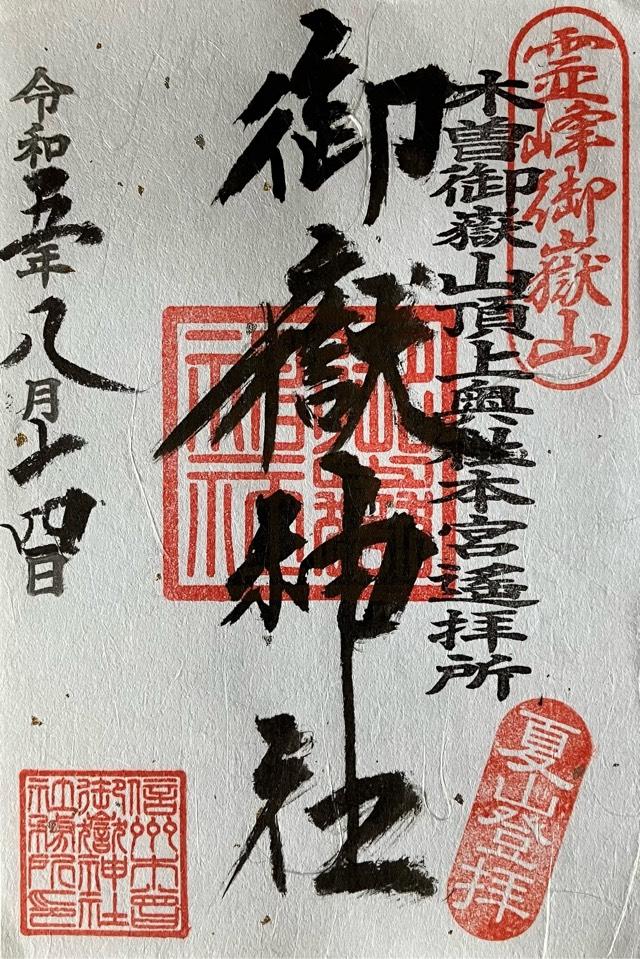 霊峰御嶽山
木曽御嶽山頂上奥社本宮遙拝所
夏山登拝
御嶽神社
令和五年八月十四日
信州木曽
御嶽神社
社務所印